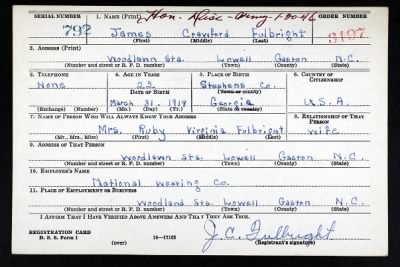 SERIAL NUMBER 1. NAME (Print) Hon. Disc. - Army 1-30-46 ORDER NUMBER
792 James Crawford Fulbright 3197
(First) (Middle) (Last)
2. ADDRESS (Print)
Woodlawn Sta. Lowell Gaston N.C.
(Number and street or R. F. D. number) (Town) (County) (State)
3. TELEPHONE 4. AGE IN YEARS 5. PLACE OF BIRTH 6. COUNTRY OF CITIZENSHIP
None 22 Stephens Co.
DATE OF BIRTH (Town or county)
March 31. 1919 Georgia U.S.A
(Exchange) (Number) (Mo.) (Day) (Yr.) (State or country)
7. NAME OF PERSON WHO WILL ALWAYS KNOW YOUR ADDRESS 8. RELATIONSHIP OF THAT PERSON
Mrs. Ruby Virginia Fulbright Wife
(Mr., Mrs., Miss) (First) (Middle) (Last)
9. ADDRESS OF THAT PERSON
Woodlawn Sta. Lowell Gaston N.C.
(Number and street or R. F. D. number) (Town) (County) (State)
10. EMPLOYER'S NAME
National Weaving Co.
11. PLACE OF EMPLOYMENT OR BUSINESS
Woodland Sta Lowell Gaston N.C.
(Number and street or R. F. D. number) (Town) (County) (State)
I AFFIRM THAT I HAVE VERIFIED ABOVE ANSWERS AND THAT THEY ARE TRUE.
REGISTRATION CARD J. C. Fulbright
D. S. S. Form 1 (over) 16—17105 (Registrant's signature)